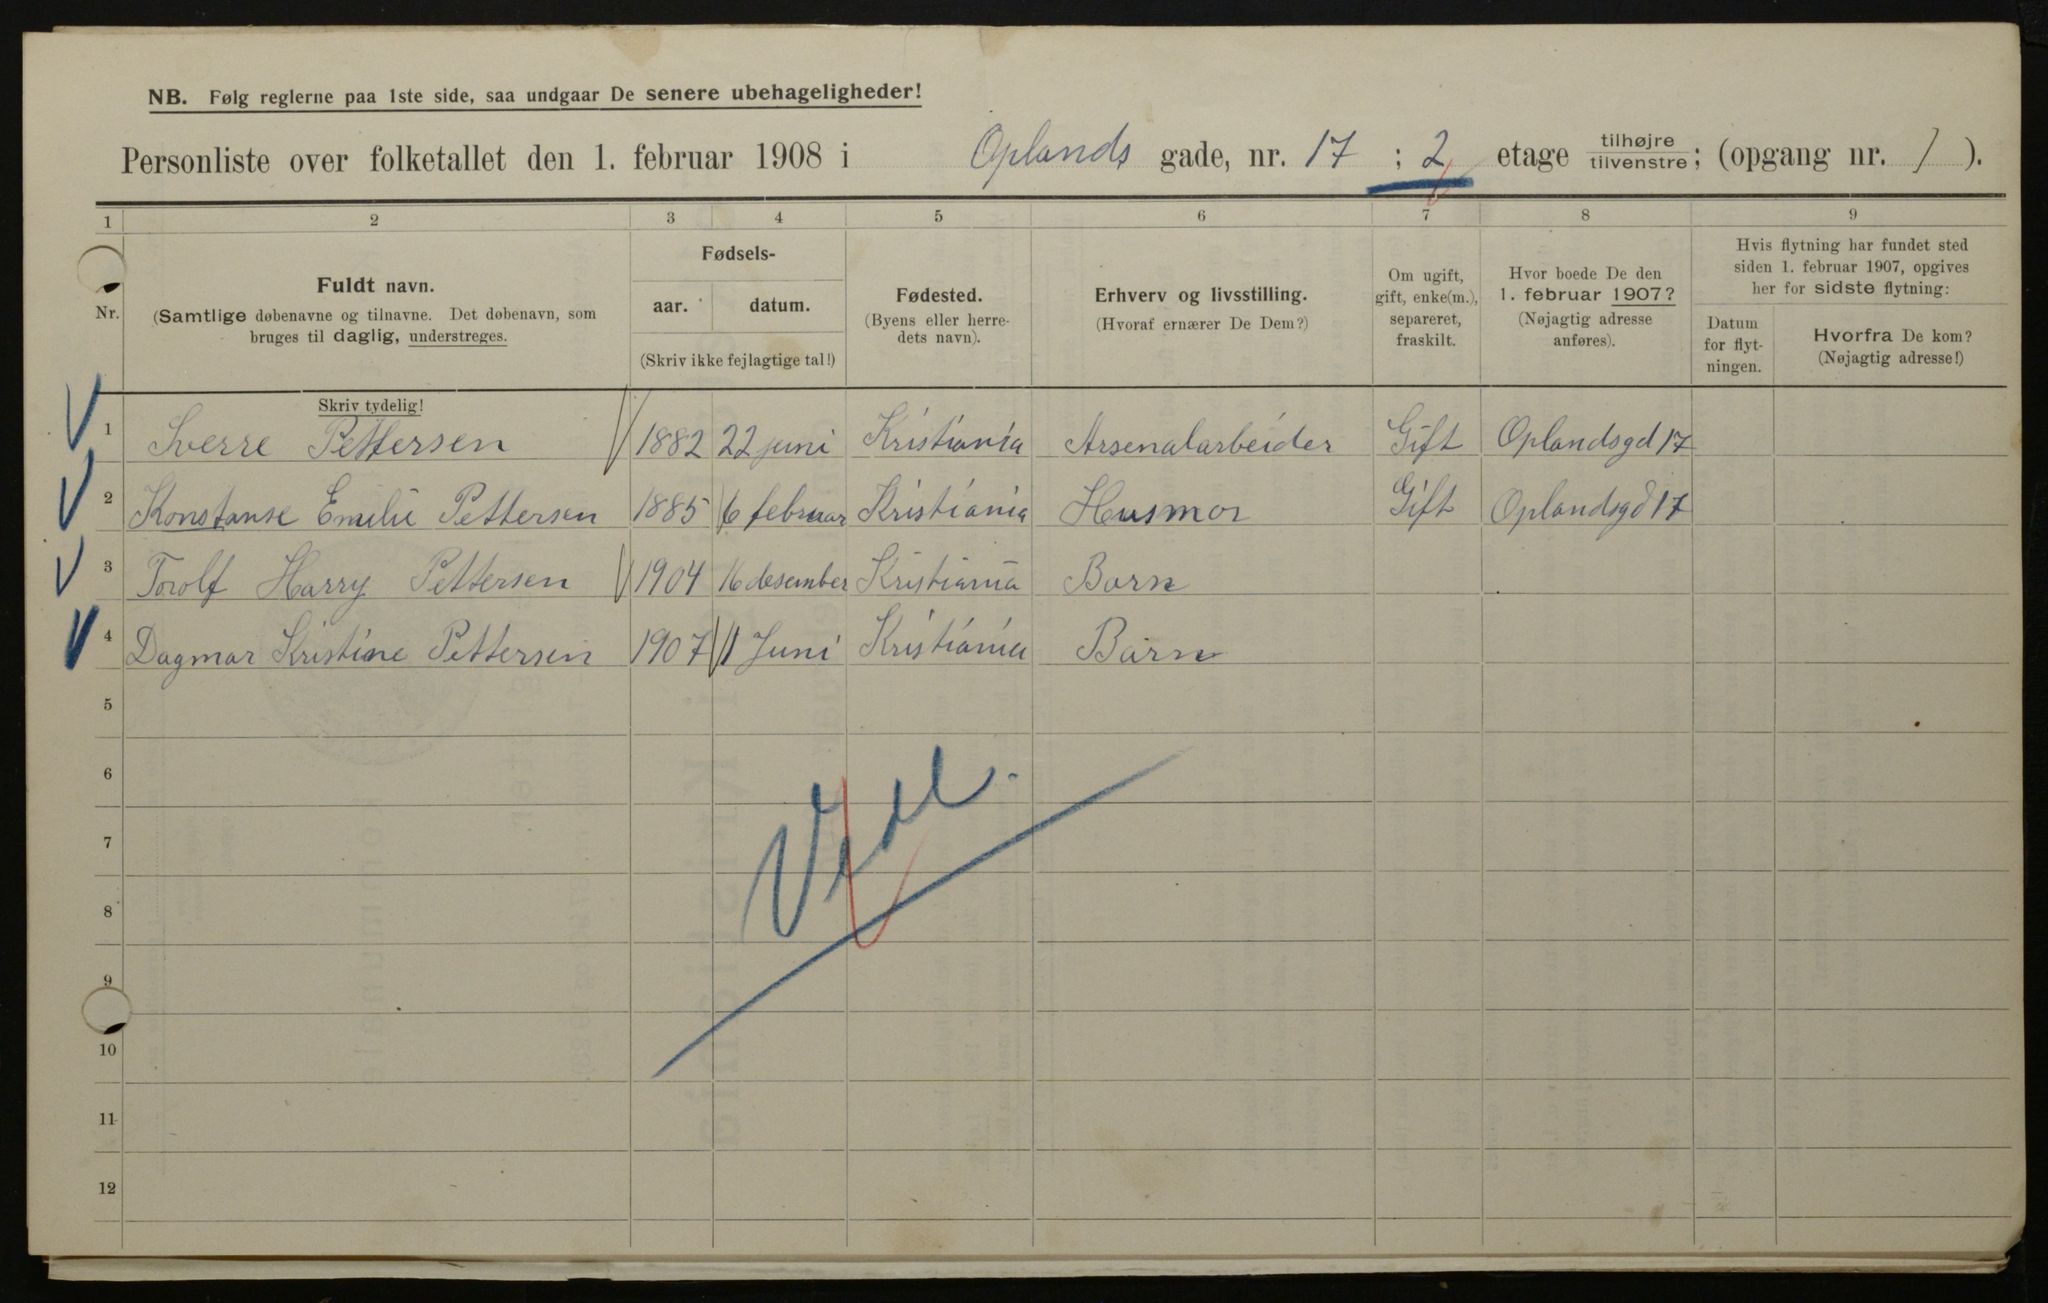 NB. Følg reglerne paa 1ste side, saa undgaar De senere ubehageligheder!
Personliste over folketallet den 1. februar 1908 i Oplands gade, nr. 17 ; 2 etage tilhøjre tilvenstre; (opgang nr. 1 ).
1 2 3 4 5 6 7 8 9
Nr.
Fuldt navn.
(Samtlige døbenavne og tilnavne. Det døbenavn, som
bruges til daglig, understreges.
Fødsels-
aar. datum.
(Skriv ikke fejlagtige tal!)
Fødested.
(Byens eller herre-
dets navn).
Erhverv og livsstilling.
(Hvoraf ernærer De Dem?)
Om ugift,
gift, enke(m.),
separeret,
fraskilt.
Hvor boede De den
1. februar 1907?
(Nøjagtig adresse
anføres).
Hvis flytning har fundet sted
siden 1. februar 1907, opgives
her for sidste flytning:
Datum
for flyt-
ningen.
Hvorfra De kom?
(Nøjagtig adresse!)
Skriv tydelig!
1 Sverre Pettersen 1882 22 juni Kristiania Arsenalarbeider Gift Oplandsgd 17
2 Konstanse Emilie Pettersen 1885 6 februar Kristiania Husmor Gift Oplandsgd 17
3 Torolf Harry Pettersen 1904 16 desember Kristiania Barn
4 Dagmar Kristine Pettersen 1907 11 Juni Kristiania Barn
5
6
7
8
9
10
11
12